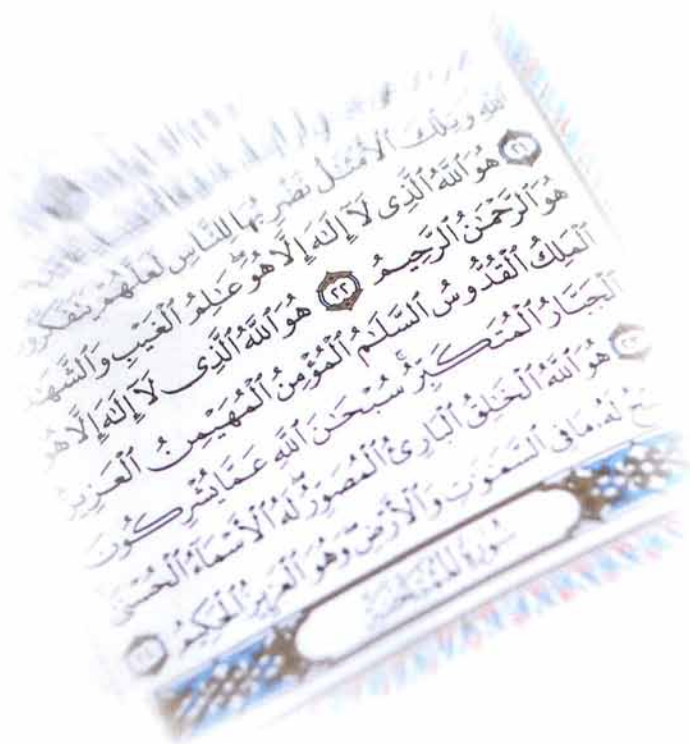 ٱللَّهِ وَتِلْكَ ٱلْأَمْثَٰلُ نَضْرِبُهَا لِلنَّاسِ لَعَلَّهُمْ يَتَفَكَّرُونَ
٢١ هُوَ ٱللَّهُ ٱلَّذِى لَآ إِلَٰهَ إِلَّا هُوَ عَٰلِمُ ٱلْغَيْبِ وَٱلشَّهَٰدَةِ
هُوَ ٱلرَّحْمَٰنُ ٱلرَّحِيمُ ٢٢ هُوَ ٱللَّهُ ٱلَّذِى لَآ إِلَٰهَ إِلَّا هُوَ
ٱلْمَلِكُ ٱلْقُدُّوسُ ٱلسَّلَٰمُ ٱلْمُؤْمِنُ ٱلْمُهَيْمِنُ ٱلْعَزِيزُ
ٱلْجَبَّارُ ٱلْمُتَكَبِّرُ ۚ سُبْحَٰنَ ٱللَّهِ عَمَّا يُشْرِكُونَ
٢٣ هُوَ ٱللَّهُ ٱلْخَٰلِقُ ٱلْبَارِئُ ٱلْمُصَوِّرُ ۖ لَهُ ٱلْأَسْمَآءُ ٱلْحُسْنَىٰ
يُسَبِّحُ لَهُۥ مَا فِى ٱلسَّمَٰوَٰتِ وَٱلْأَرْضِ ۖ وَهُوَ ٱلْعَزِيزُ ٱلْحَكِيمُ ٢٤
سُورَةُ ٱلْمُمْتَحِنَةِ